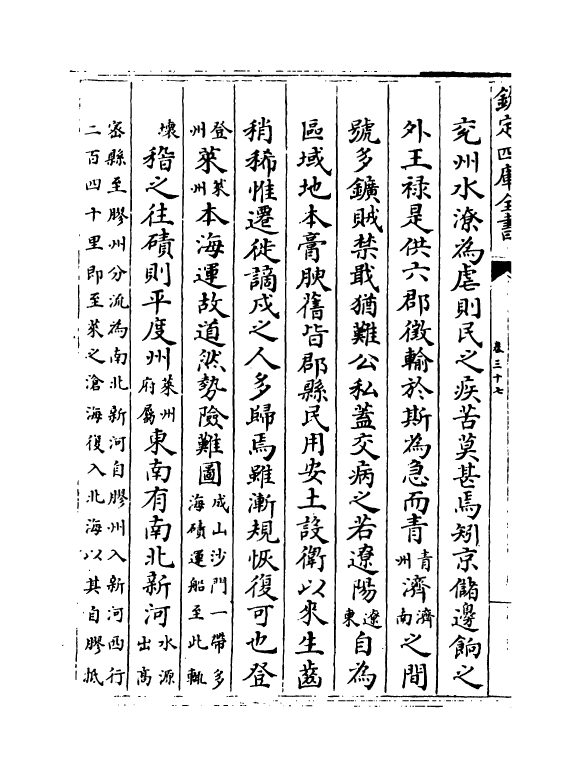 欽定四庫全書
卷三十七
兗州水潦為虐則民之疾苦莫甚焉矧京儲邊餉之
外王禄是供六郡徵輸於斯為急而青青州濟濟南之間
號多鑛賊禁戢猶難公私蓋交病之若遼陽遼東自為
區域地本膏腴舊皆郡縣民用安土設衛以來生齒
稍稀惟遷徙謫戍之人多歸焉雖漸規恢復可也登
登州萊萊州本海運故道然勢險難圖成山沙門一帶多海磧運船至此輒
壞稽之往磧則平度州萊州府屬東南有南北新河水源出高
宻縣至膠州分流為南北新河自膠州入新河西行
二百四十里即至萊之滄海復入北海以其自膠抵